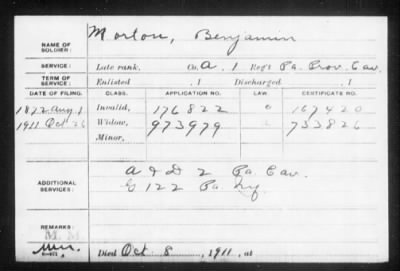 NAME OF SOLDIER: Morton, Benjamin
SERVICE: Late rank, Co. A, 1 Reg't Pa. Prov. Cav.
TERM OF SERVICE: Enlisted , 1 Discharged , 1
DATE OF FILING. CLASS. APPLICATION NO. LAW. CERTIFICATE NO.
1872 Aug. 1 Invalid, 176822 167420
1911 Oct 26 Widow, 973979 733826
Minor,
ADDITIONAL SERVICES: A & D 2 Pa. Cav.
G 122 Pa. Inf.
REMARKS:
Died Oct 8, 1911, at